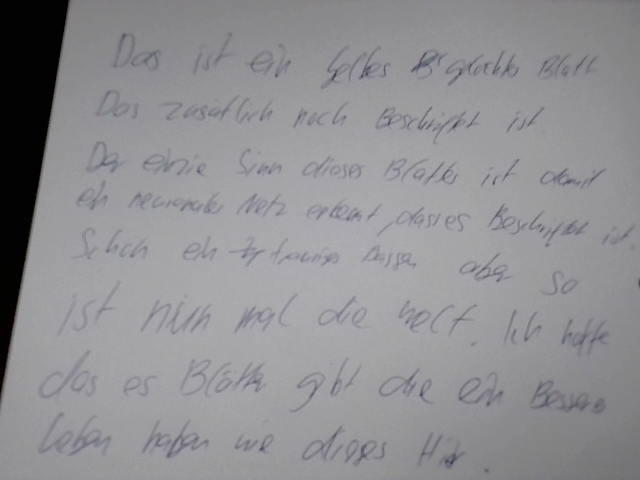 Das ist ein gelbes Blatt
Das zusätlich noch Beschriftet ist
Der einzie Sinn dieses Blattes ist damit
ein neuronales Netz erkennt, dass es Beschriftet ist.
Schon ein trauriges aber so
ist nun mal die welt. Ich hoffe
das es Blätter gibt die ein Besseres
leben haben wie dieses Hier.